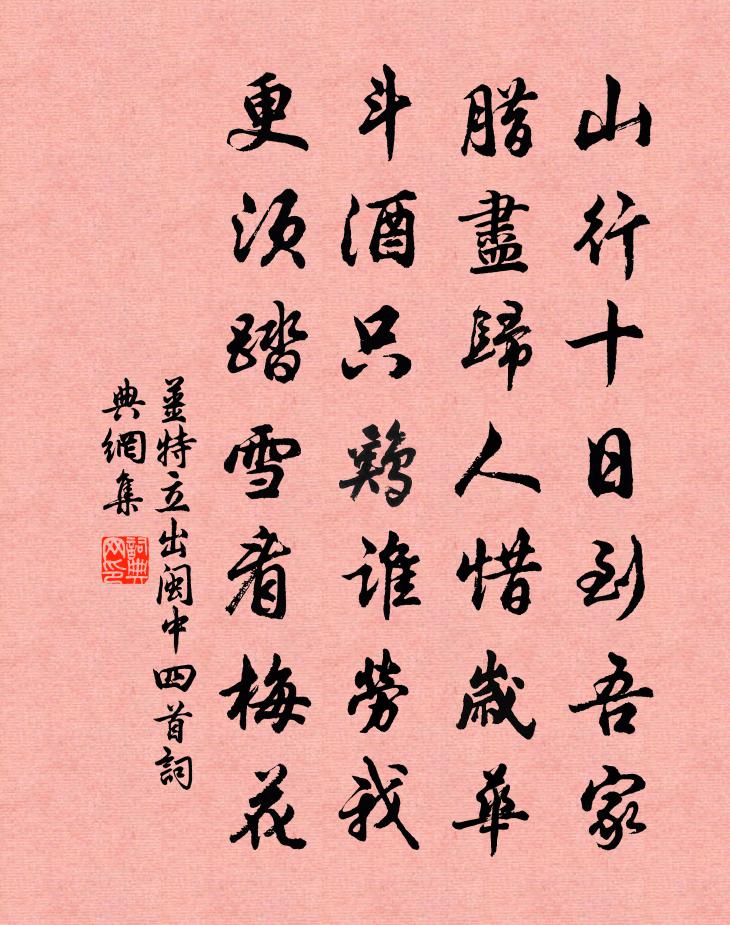 山行十日到吾家
腊盡歸人惜歲華
斗酒只鷄誰勞我
更須踏雪看梅花
姜特立出閩中四首詞
典網集
詞典
网印